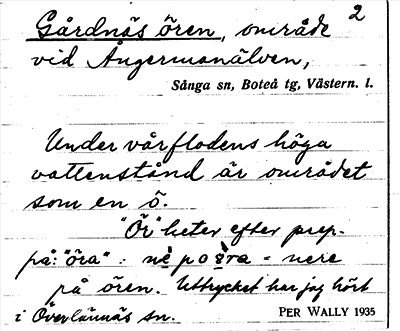 2
Gårdnäs ören, område
vid Ångermanälven,
Sånga sn, Boteå tg, Västern. l.
Under vårflodens höga
vattenstånd är området
som en ö.
"Ör" heter efter prep.
på: "öra" : nè po òra = nere
på ören. Uttrycket har jag hört
i Överlännäs sn. PER WALLY 1935